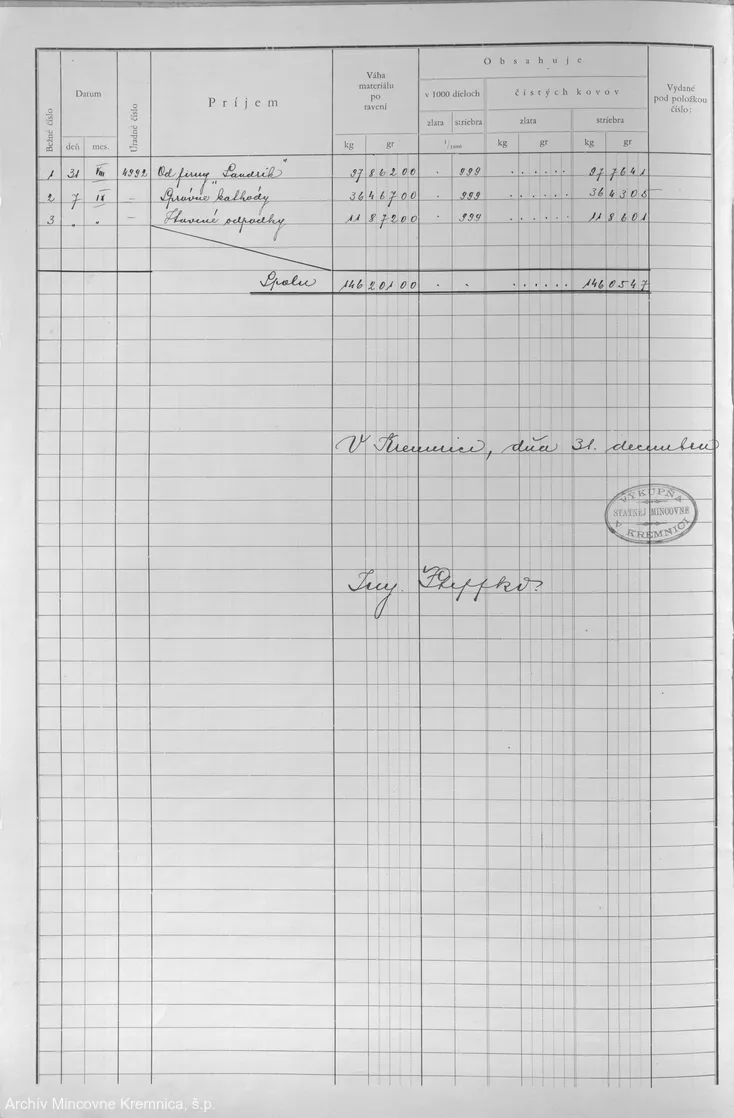 Obsahuje
Bežné číslo
Datum
Úradné číslo
Príjem
Váha
materiálu
po
tavení
v 1000 dieloch
čistých kovov
Vydané
pod položkou
číslo:
zlata striebra zlata striebra
deň mes. kg gr 1/1000 kg gr kg gr
1 31 VIII 4992 Od firmy "Sandrik" 97 86200 . 999 . . . . . . 97 7641
2 7 IX – Správne kathódy 36 46700 999 . . . . . . 36 4305
3 " " – Stavené odpadky 11 87200 . 999 . . . . . . 11 8601
Spolu 146 20100 . . . . . . . . 146 0547
V Kremnici, dňa 31. decembra
VÝKUPŇA
ŠTÁTNEJ MINCOVNE
V KREMNICI
Ing.
Archív Mincovne Kremnica, š.p.